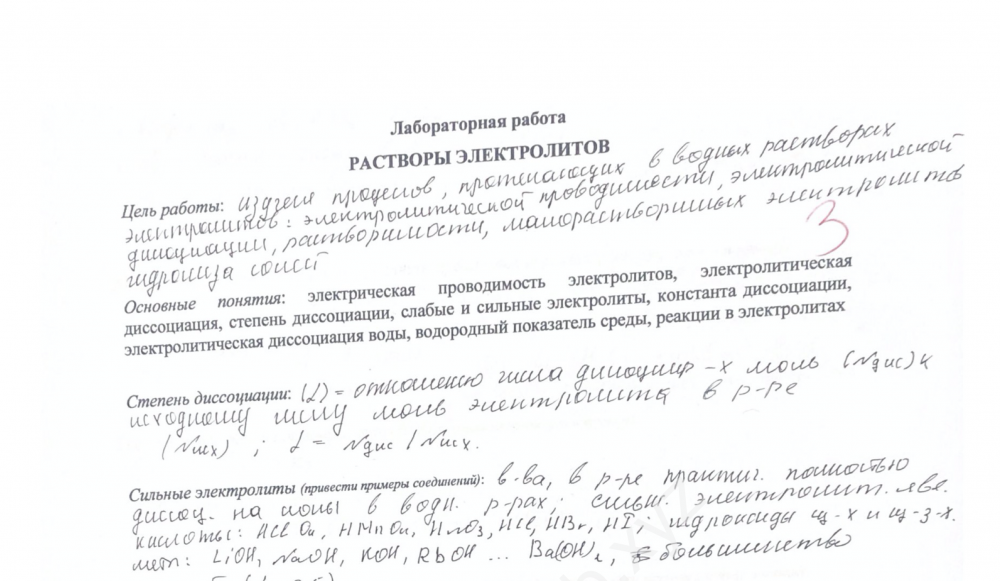 Лабораторная работа
РАСТВОРЫ ЭЛЕКТРОЛИТОВ
Цель работы: процесов, протекающих в водных растворах
электролитов: электролитической проводимости, электролитической
диссоциации, растворимости, малорастворимых электролитов
гидролиза солей
3
Основные понятия: электрическая проводимость электролитов, электролитическая
диссоциация, степень диссоциации, слабые и сильные электролиты, константа диссоциации,
электролитическая диссоциация воды, водородный показатель среды, реакции в электролитах
Степень диссоциации: (α) = отношению числа диссоциир-х моль (Nдис) к
исходному числу моль электролита в р-ре
(Nисх) ; α = Nдис / Nисх.
Сильные электролиты (привести примеры соединений): в-ва, в р-ре практич. полностью
диссоц. на ионы в водн. р-рах; сильн. электролит. явл.
кислоты: HClO₄, HMnO₄, HNO₃, HCl, HBr, HI, гидроксиды щ-х и щ-з-х.
мет: LiOH, NaOH, KOH, RbOH ... Ba(OH)₂, большинство